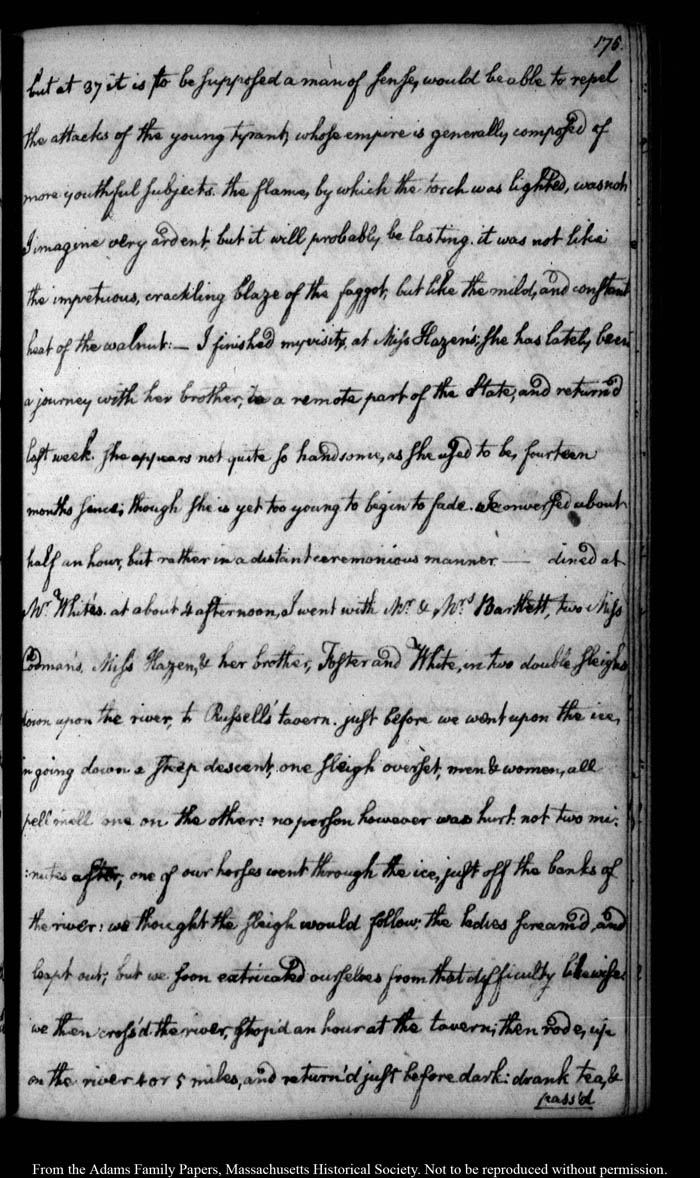 175.
but at 37 it is to be supposed a man of sense, would be able to repel
the attacks of the young tyrant, whose empire is generally composed of
more youthful subjects. the flame, by which the torch was lighted, was not
I imagine very ardent, but it will probably be lasting. it was not like
the impetuous, crackling blaze of the faggot, but like the mild, and constant
heat of the walnut: — I finished my visits, at Miss Hazen's; she has lately been
a journey with her brother, to a remote part of the State, and return'd
last week. she appears not quite so handsome, as she used to be, fourteen
months since; though she is yet too young to begin to fade. We conversed about
half an hour, but rather in a distant ceremonious manner. — dined at
Mr. White's. at about 4 afternoon, I went with Mr. & Mrs Bartlett, two Miss
Codman's, Miss Hazen, & her brother, Foster and White, in two double sleighs
down upon the river, to Russell's tavern. just before we went upon the ice,
in going down a steep descent, one sleigh overset, men & women, all
pell mell one on the other: no person however was hurt. not two mi:
:nutes after, one of our horses went through the ice, just off the banks of
the river: we thought the sleigh would follow; the ladies scream'd, and
leapt out; but we soon extricated ourselves from that difficulty likewise
we then cross'd the river, stop'd an hour at the tavern; then rode, up
on the river 4 or 5 miles, and return'd just before dark: drank tea, &
pass'd
From the Adams Family Papers, Massachusetts Historical Society. Not to be reproduced without permission.